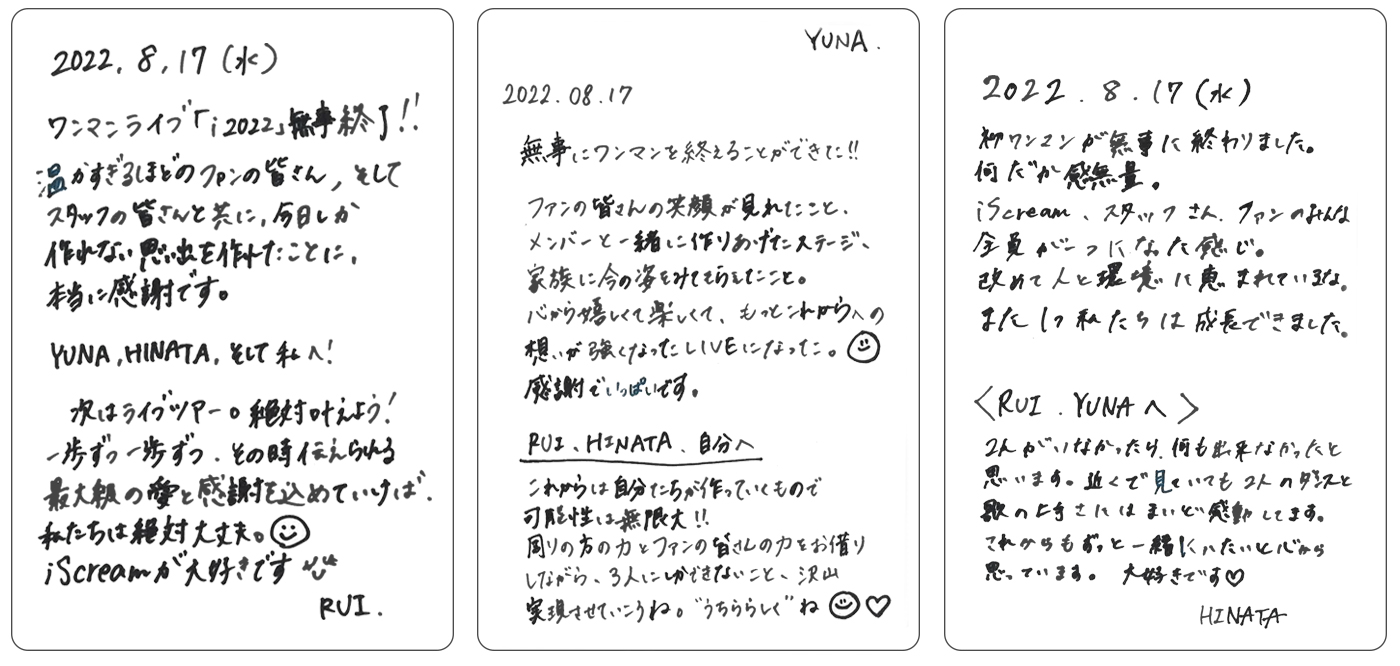 2022.8.17(水)
ワンマンライブ「i 2022」無事終了!!
温かすぎるほどのファンの皆さん,そして
スタッフの皆さんと共に,今日しか
作れない思い出を作れたことに,
本当に感謝です。
YUNA,HINATA,そして私へ!
次はライブツアー。絶対叶えよう!
一歩ずつ一歩ずつ.その時伝えられる
最大級の愛と感謝を込めていけば.
私たちは絶対大丈夫。
iScreamが大好きです
RUI.
YUNA.
2022.08.17
無事にワンマンを終えることができた!!
ファンの皆さんの笑顔が見れたこと、
メンバーと一緒に作りあげたステージ、
家族に今の姿をみてもらえたこと。
心から嬉しくて楽しくて、もっとこれからへの
想いが強くなったLIVEになった。
感謝でいっぱいです。
RUI、HINATA、自分へ
これからは自分たちが作っていくもので
可能性は無限大!!
周りの方の力とファンの皆さんの力をお借り
しながら、3人にしかできないこと、沢山
実現させていこうね。"うちららしく"ね ♡
2022.8.17(水)
初ワンマンが無事に終わりました。
何だか感無量。
iScream、スタッフさん、ファンのみんな
全員が一つになった感じ。
改めて人と環境に恵まれているな。
また1つ私たちは成長できました。
<RUI.YUNAへ>
2人がいなかったら、何も出来なかったと
思います。近くで見ていても2人のダンスと
歌の上手さにはまいど感動してます。
これからもずっと一緒にいたいと心から
思っています。 大好きです♡
HINATA